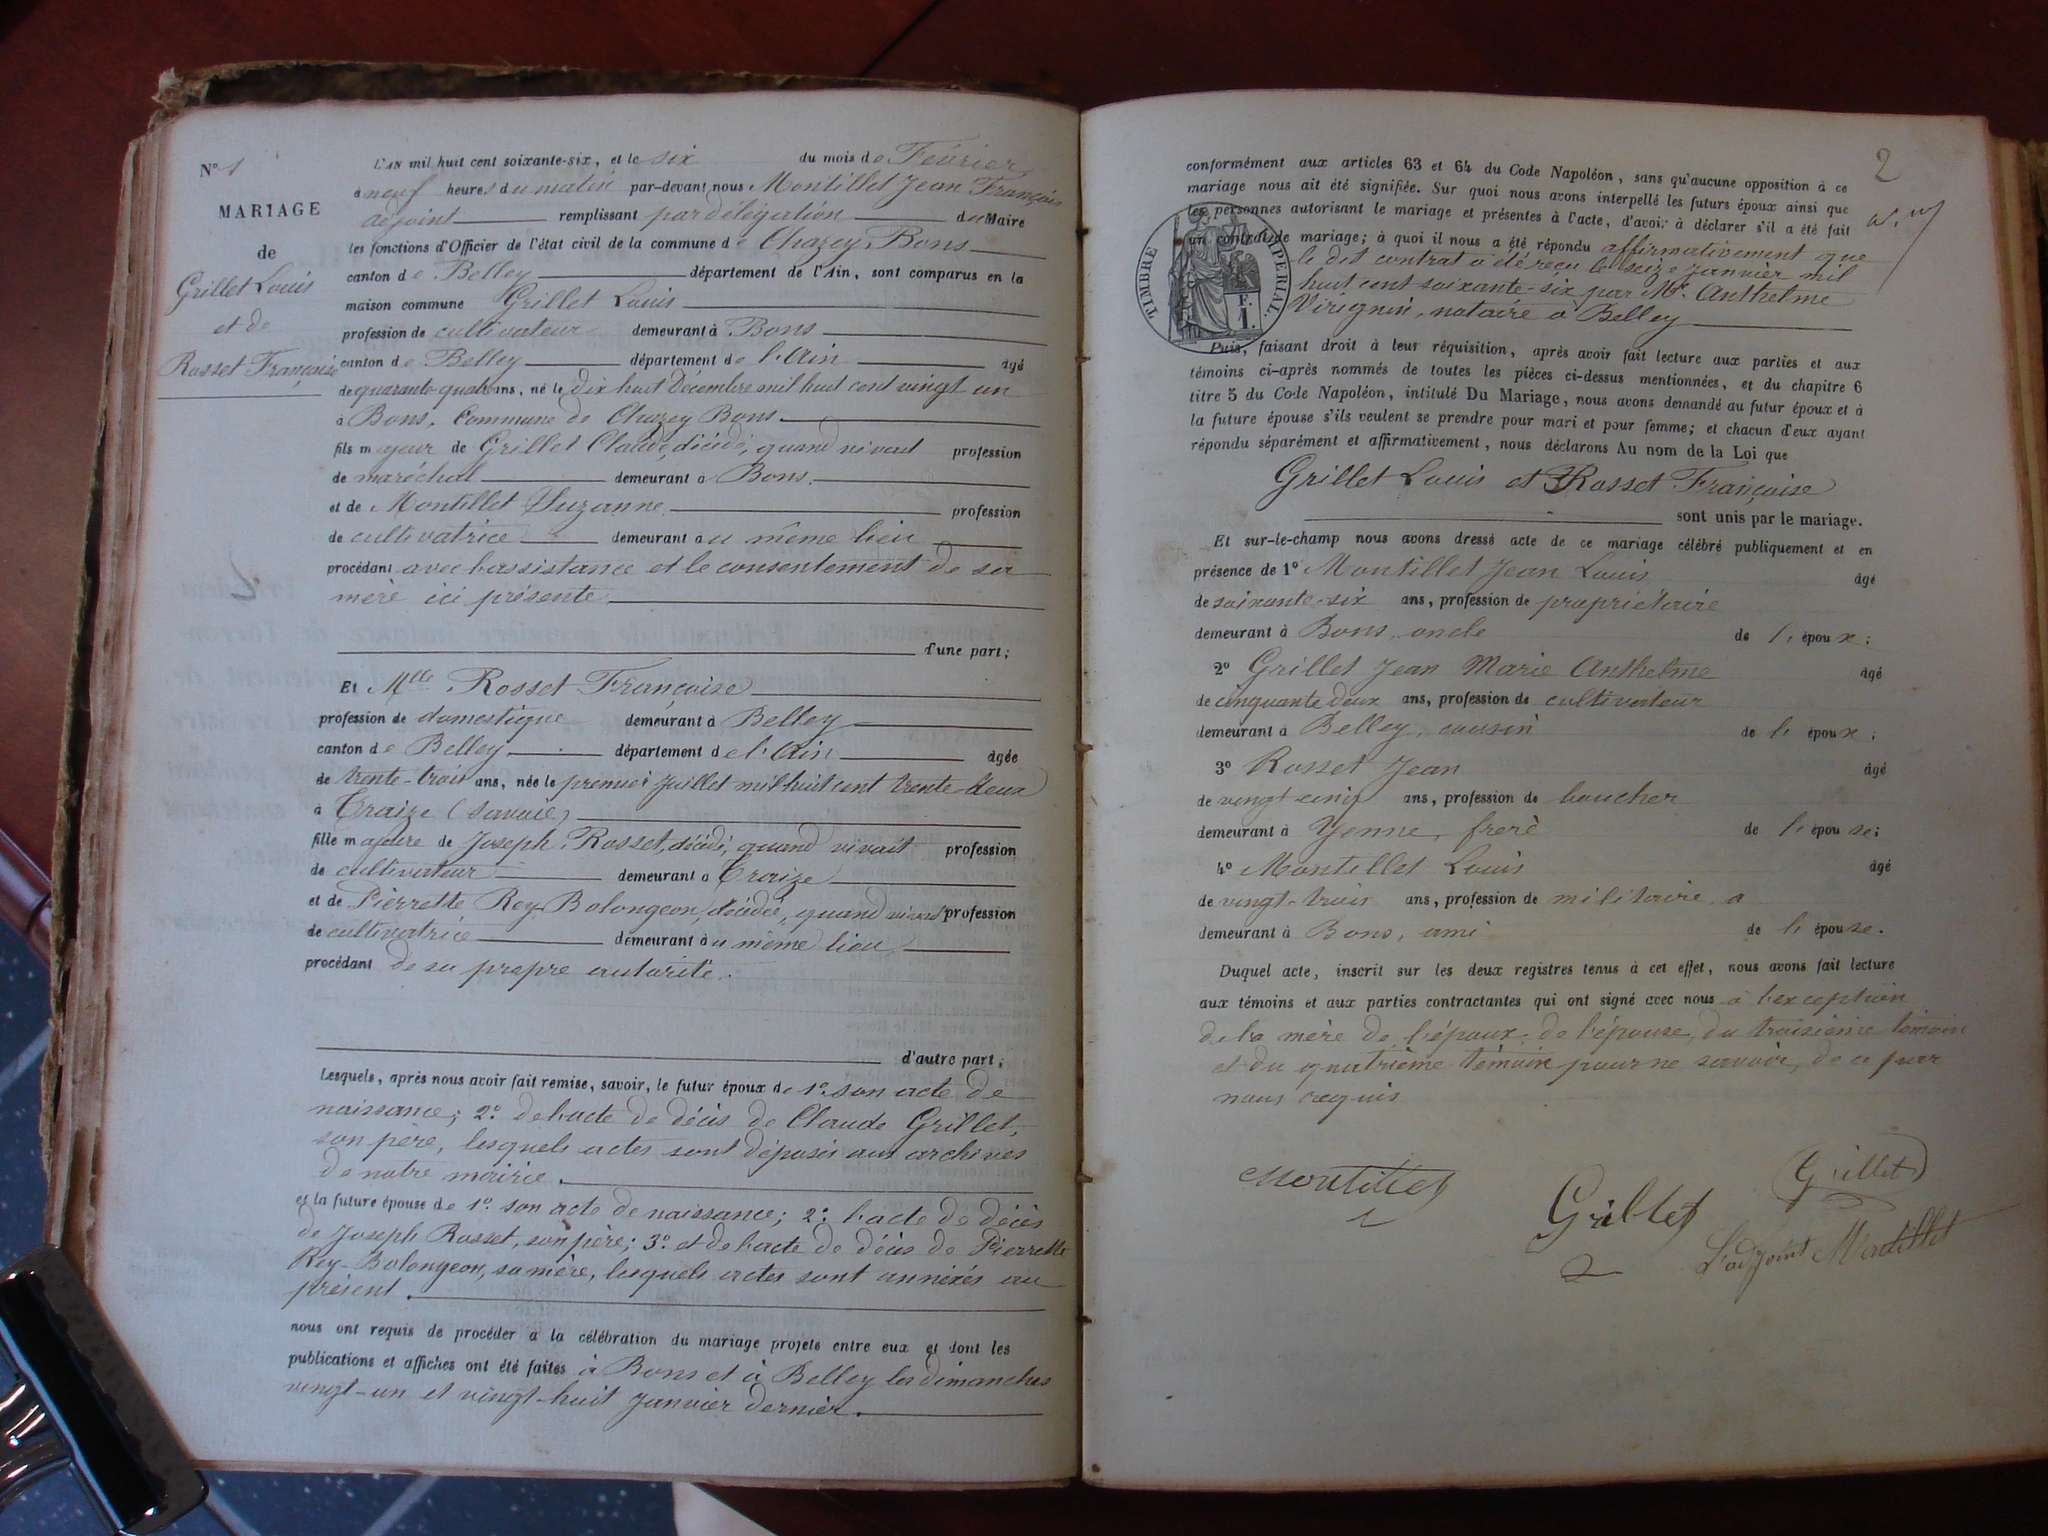 N° 1
MARIAGE
de
Grillet Louis
et de
Rosset Françoise
L'AN mil huit cent soixante-six, et le six du mois de Février
à neuf heures du matin par-devant nous Montillet Jean François
adjoint remplissant par délégation du Maire
les fonctions d'Officier de l'état civil de la commune de Chazey-Bons
canton de Belley département de l'Ain, sont comparus en la
maison commune Grillet Louis
profession de cultivateur demeurant à Bons
canton de Belley département de l'Ain âgé
de quarante-quatre ans, né le dix huit Décembre mil huit cent vingt un
à Bons, Commune de Chazey Bons
fils majeur de Grillet Claude, décédé, quand vivait profession
de maréchal demeurant à Bons
et de Montillet Suzanne profession
de cultivatrice demeurant au même lieu
procédant avec l'assistance et le consentement de sa
mère ici présente
d'une part;
Et Mlle Rosset Françoise
profession de domestique demeurant à Belley
canton de Belley département de l'Ain âgée
de trente-trois ans, née le premier Juillet mil huit cent trente-deux
à Traize (Savoie)
fille majeure de Joseph Rosset, décédé, quand vivait profession
de cultivateur demeurant à Traize
et de Pierrette Rey-Bolongeon, décédée, quand vivait profession
de cultivatrice demeurant au même lieu
procédant de sa propre autorité.
d'autre part;
Lesquels, après nous avoir fait remise, savoir, le futur époux de 1° son acte de
naissance; 2° de l'acte de décès de Claude Grillet,
son père, lesquels actes sont déposés aux archives
de notre mairie.
et la future épouse de 1° son acte de naissance; 2° l'acte de décès
de Joseph Rosset, son père; 3° et de l'acte de décès de Pierrette
Rey-Bolongeon, sa mère, lesquels actes sont annexés au
présent.
nous ont requis de procéder à la célébration du mariage projeté entre eux et dont les
publications et affiches ont été faites à Bons et à Belley les dimanches
vingt-un et vingt-huit Janvier dernier.
2
conformément aux articles 63 et 64 du Code Napoléon, sans qu'aucune opposition à ce
mariage nous ait été signifiée. Sur quoi nous avons interpellé les futurs époux ainsi que
les personnes autorisant le mariage et présentes à l'acte, d'avoir à déclarer s'il a été fait
un contrat de mariage; à quoi il nous a été répondu affirmativement que
le dit contrat a été reçu le seize Janvier mil
huit cent soixante-six par Me Anthelme
Virignin, notaire à Belley
TIMBRE IMPERIAL.
Puis, faisant droit à leur réquisition, après avoir fait lecture aux parties et aux
témoins ci-après nommés de toutes les pièces ci-dessus mentionnées, et du chapitre 6
titre 5 du Code Napoléon, intitulé Du Mariage, nous avons demandé au futur époux et à
la future épouse s'ils veulent se prendre pour mari et pour femme; et chacun d'eux ayant
répondu séparément et affirmativement, nous déclarons Au nom de la Loi que
Grillet Louis et Rosset Françoise
sont unis par le mariage.
Et sur-le-champ nous avons dressé acte de ce mariage célébré publiquement et en
présence de 1° Montillet Jean Louis âgé
de soixante-six ans, profession de propriétaire
demeurant à Bons, oncle de l'époux;
2° Grillet Jean Marie Anthelme âgé
de cinquante deux ans, profession de cultivateur
demeurant à Belley, cousin de l'époux;
3° Rosset Jean âgé
de vingt-cinq ans, profession de boucher
demeurant à Yenne, frère de l'épouse;
4° Montillet Louis âgé
de vingt-trois ans, profession de militaire, a
demeurant à Bons, ami de l'épouse.
Duquel acte, inscrit sur les deux registres tenus à cet effet, nous avons fait lecture
aux témoins et aux parties contractantes qui ont signé avec nous à l'exception
de la mère de l'époux, de l'épouse, du troisième témoin
et du quatrième témoin pour ne savoir, de ce par
nous requis
Montillet
Grillet
Grillet
L'adjoint Montillet